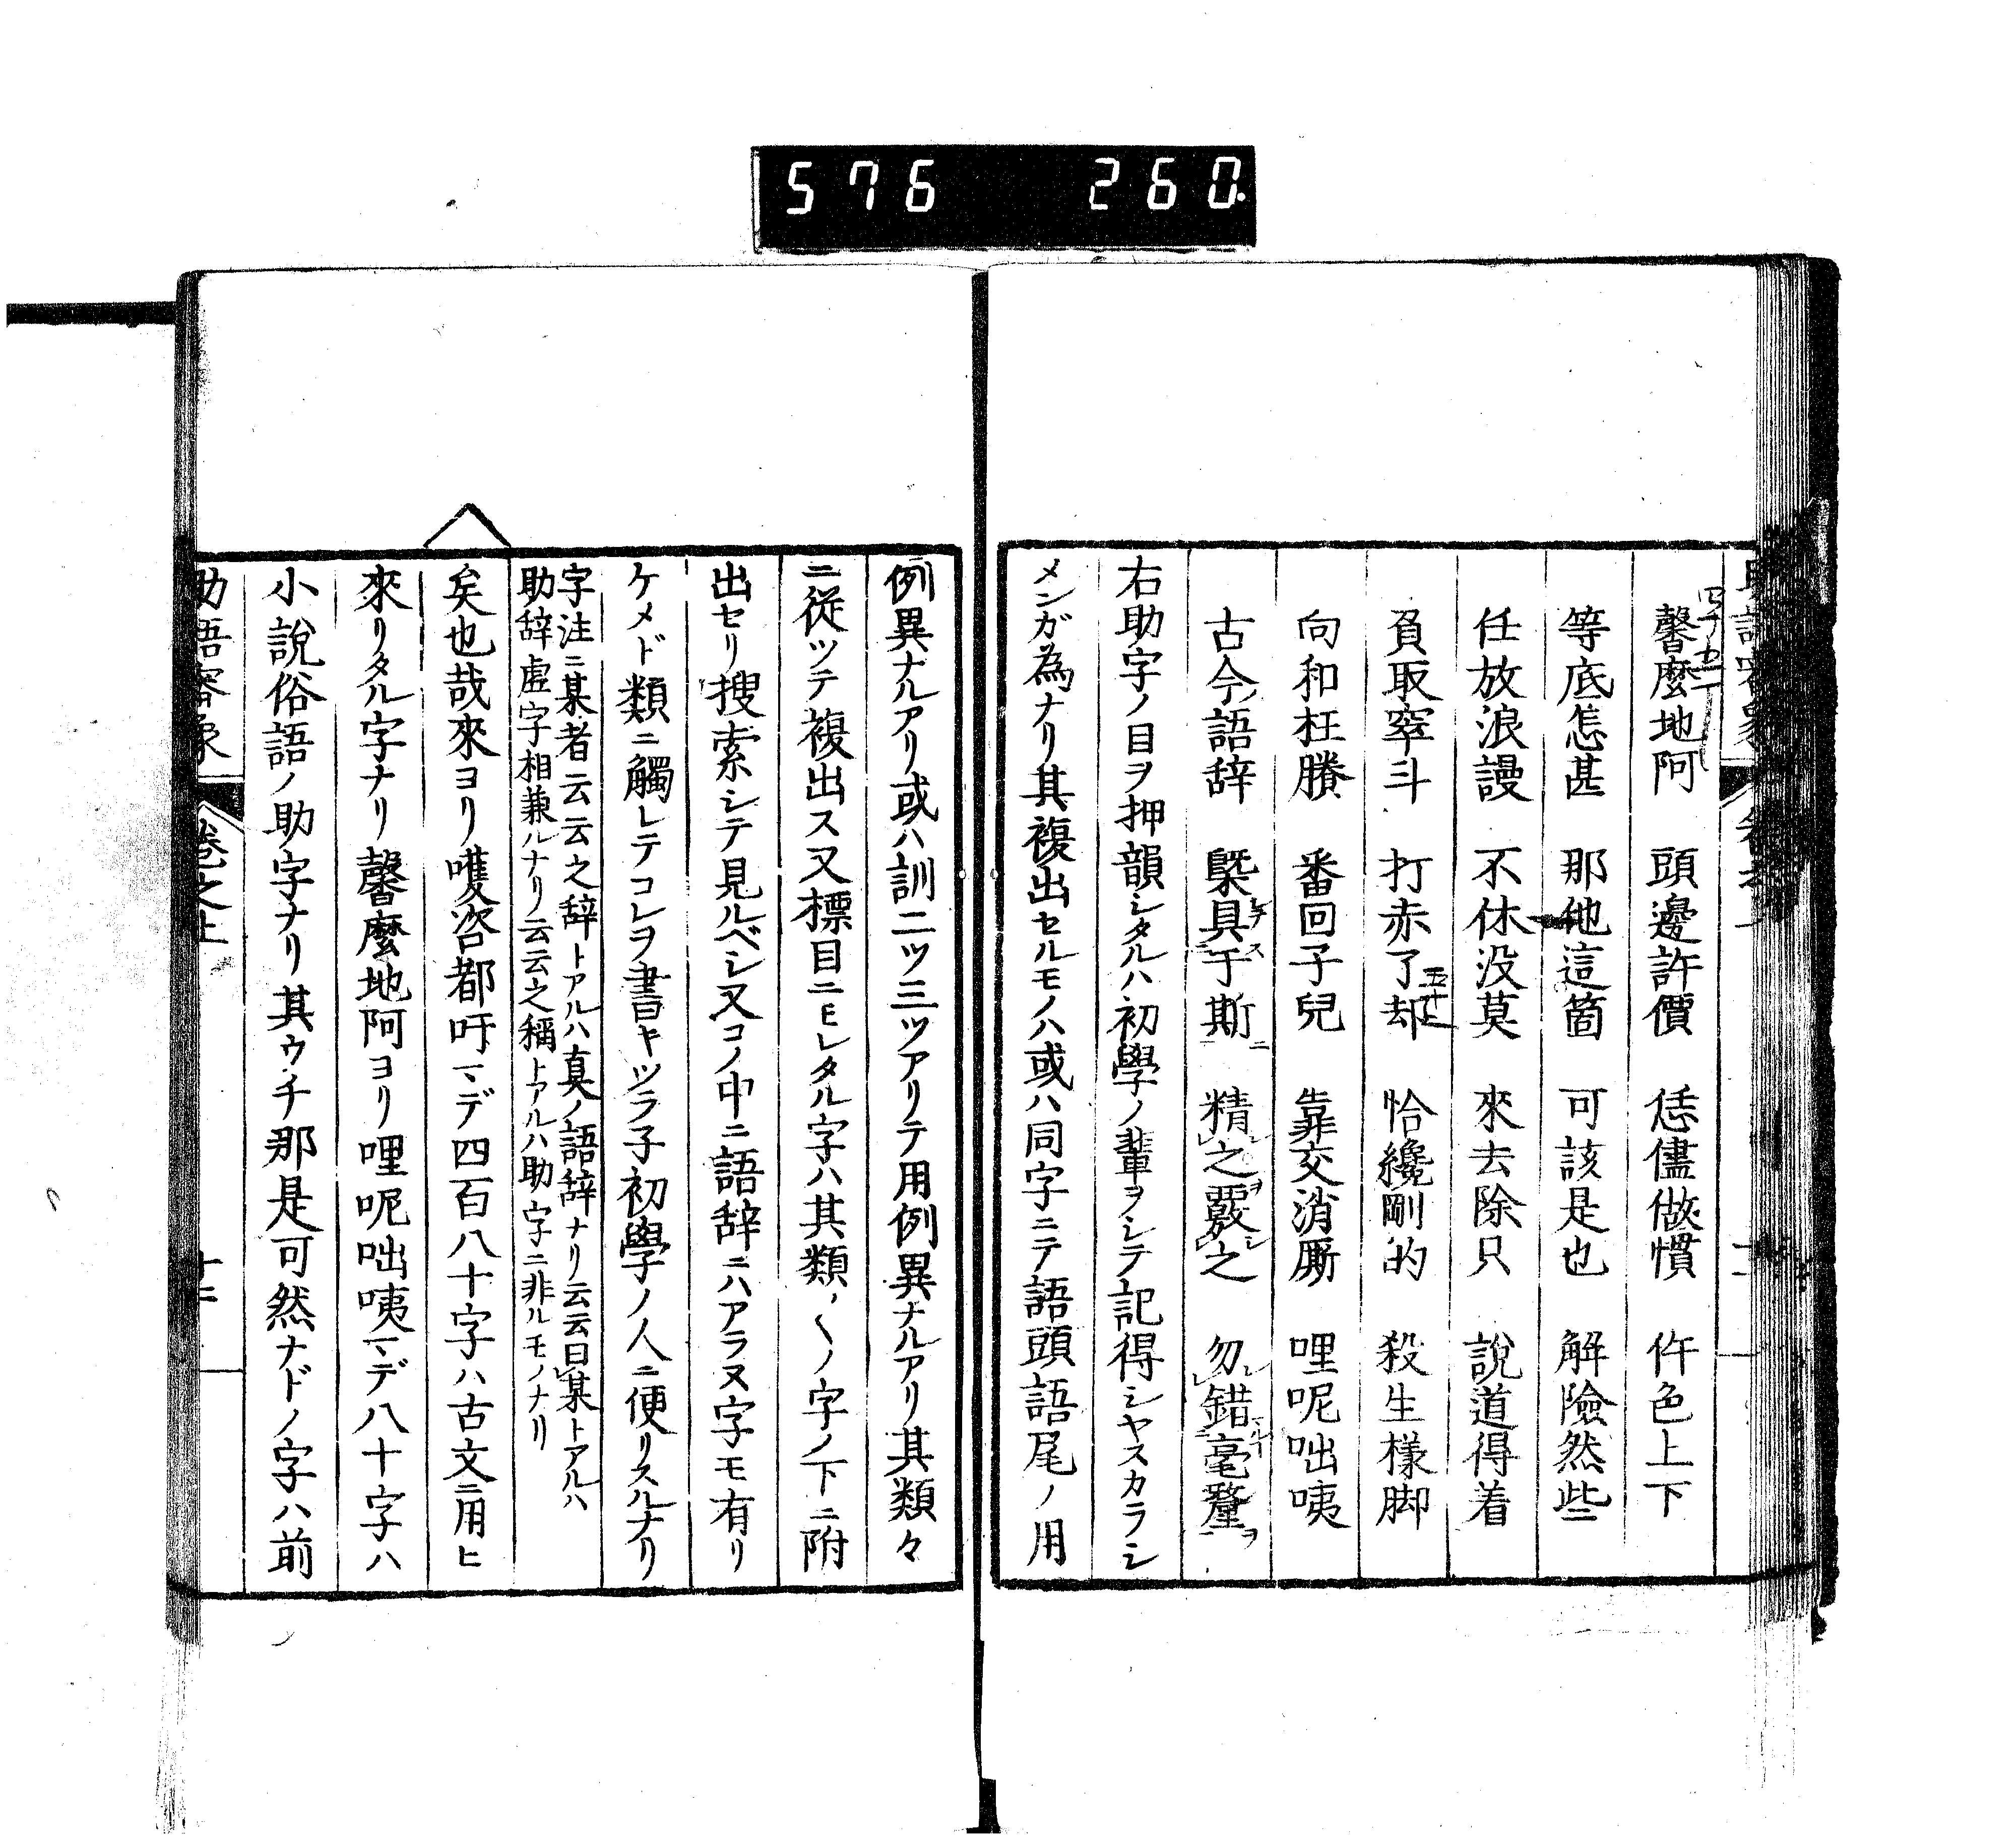 576 260
馨麼地阿 頭邊許價 恁儘做慣 仵色上下
等底怎甚 那他這箇 可該是也 解險然些
任放浪謾 不休没莫 來去除只 說道得着
負取窣斗 打赤了却 恰纔剛的 殺生樣脚
向和枉賸 番回子兒 靠交消厮 哩呢咄咦
古今語辞 槩具于斯 精之覈之 勿錯毫釐
右助字ノ目ヲ押韻シタルハ初學ノ輩ヲシテ記得シヤスカラシ
メンガ為ナリ其複出セルモノハ或ハ同字ニテ語頭語尾ノ用
例異ナルアリ或ハ訓二ツ三ツアリテ用例異ナルアリ其類々
ニ從ツテ複出ス又標目ニモレタル字ハ其類〱ノ字ノ下ニ附
出セリ搜索シテ見ルベシ又コノ中ニ語辞ニハアラヌ字モ有リ
ケメド類ニ觸レテコレヲ書キツラ子初學ノ人ニ便リスルナリ
字注ニ某者云云之辞トアルハ真ノ語辞ナリ云云曰某トアルハ
助辞虚字相兼ルナリ云云之稱トアルハ助字ニ非ルモノナリ
矣也哉來ヨリ嚄咨都吁マデ四百八十字ハ古文ニ用ヒ
來リタル字ナリ馨麼地阿ヨリ哩呢咄咦マデ八十字ハ
小說俗語ノ助字ナリ其ウチ那是可然ナドノ字ハ前
助語審象 卷之上 十二